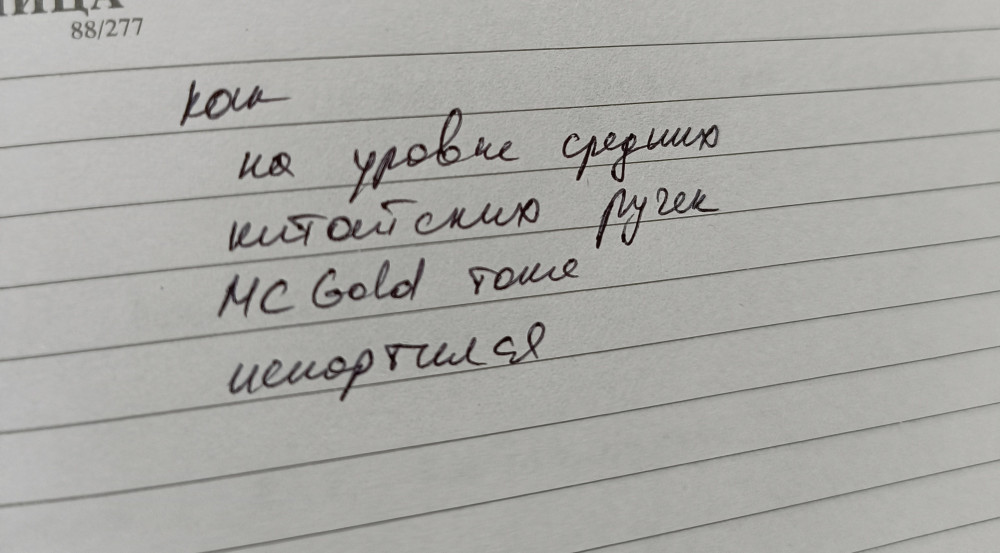 88/277
как
на уровне средних
китайских ручек
MC Gold тоже
испортился